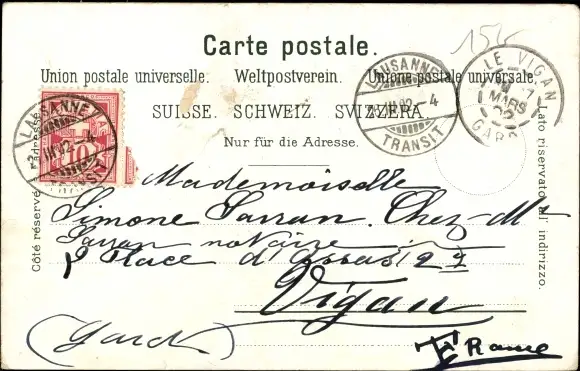 154
Carte postale.
Union postale universelle. Weltpostverein. Unione postale universale.
SUISSE. SCHWEIZ. SVIZZERA.
Nur für die Adresse.
Côté réservé à l'adresse.
Lato riservato all'indirizzo.
LAUSANNE
III 02 - 4
10
LAUSANNE
III 02 - 4
TRANSIT
LE VIGAN
MARS
02
GARD
Mademoiselle
Simone Sarran. Chez Mr
Sarran notaire
Place d'Assas 2
Vigan
(Gard)
France